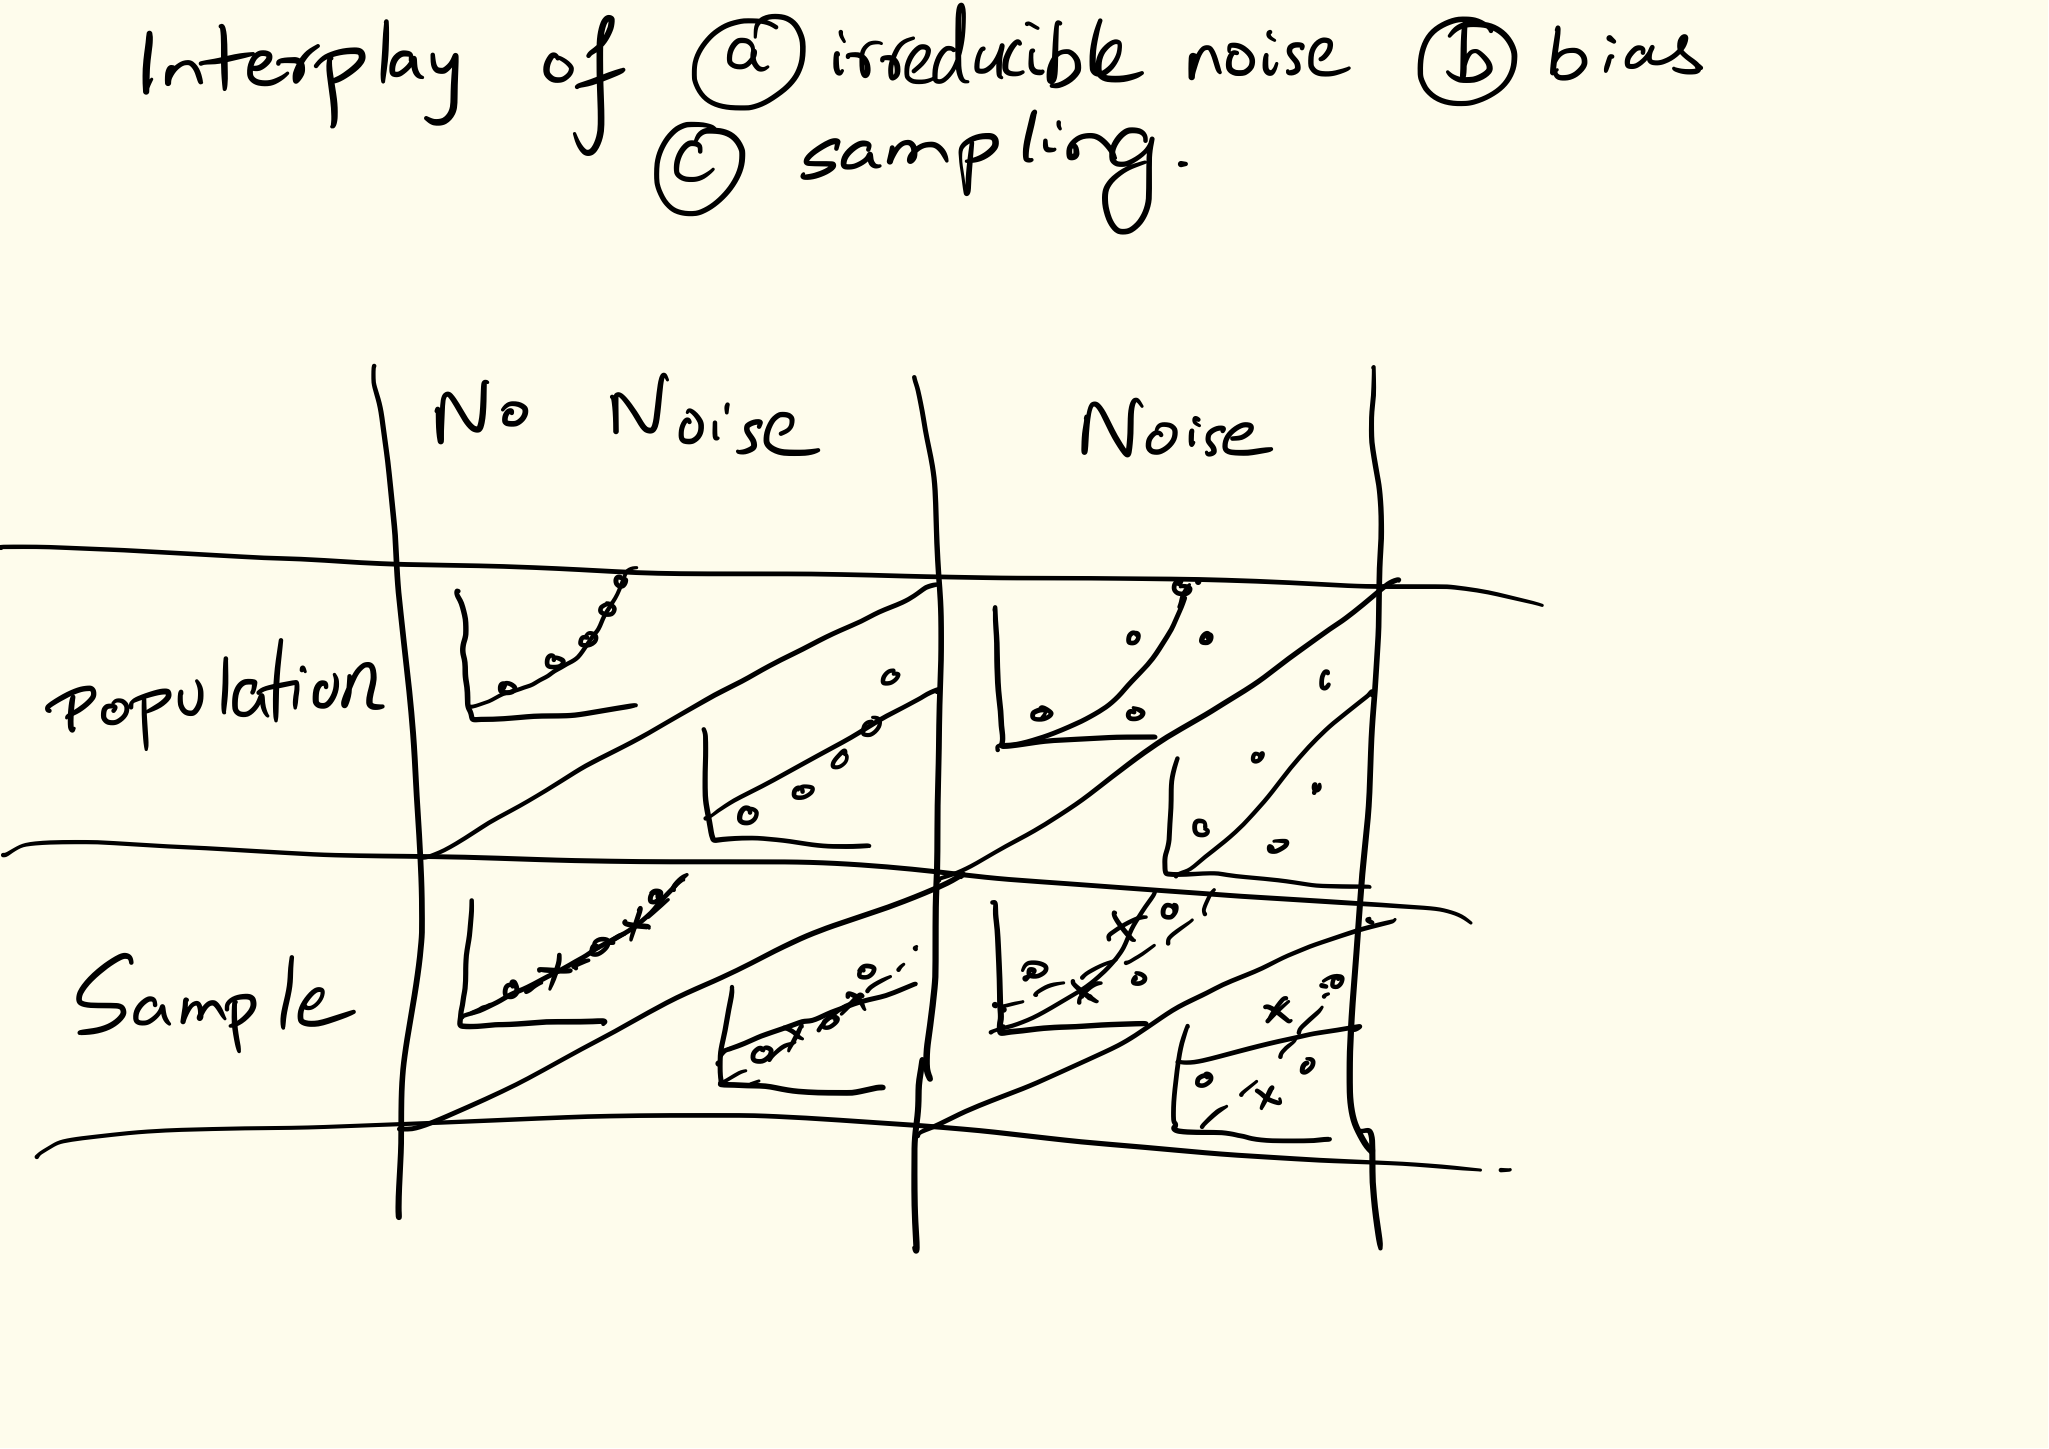 Interplay of ⓐ irreducible noise ⓑ bias
ⓒ sampling.
No Noise
Noise
Population
Sample